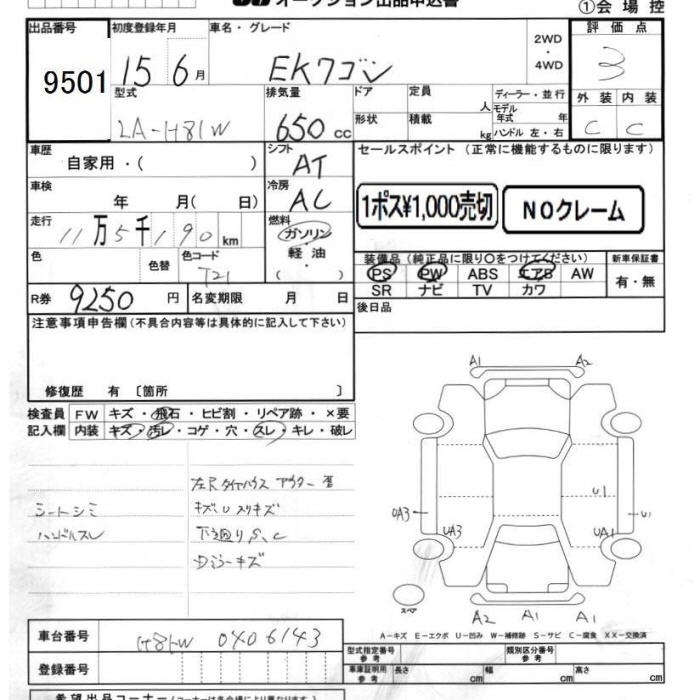 オークション出品申込書
①会場控
出品番号 初度登録年月 車名・グレード 評価点
9501 15 6月 EKワゴン 2WD・4WD 3
型式 排気量 ドア 定員 人 ディーラー・並行 外装 内装
LA-H81W 650cc 形状 積載 kg モデル年式 年 ハンドル 左・右 C C
車歴 自家用・( ) シフト AT セールスポイント (正常に機能するものに限ります)
車検 年 月( 日) 冷房 AC
1ポス¥1,000売切 NOクレーム
走行 11万5千190km 燃料 ガソリン・軽油・( )
色 色替 色コード T21
装備品(純正品に限り○をつけてください) 新車保証書
PS PW ABS エアB AW 有・無
SR ナビ TV カワ
R券 9250円 名変期限 月 日 後日品
注意事項申告欄(不具合内容等は具体的に記入して下さい)
修復歴 有 〔箇所 〕
検査員 FW キズ・飛石・ヒビ割・リペア跡・×要
記入欄 内装 キズ・汚レ・コゲ・穴・スレ・キレ・破レ
左R タイヤハウス アウター 歪
シートシミ キズU スリキズ
ハンドルスレ 下廻りS、C
キズ
A1 A2
UA3 UA3 U1 UA1 U1
スペア
A2 A1 A1
A-キズ E-エクボ U-凹み W-補修跡 S-サビ C-腐食 XX-交換済
車台番号 H81W 0406143
型式指定番号 参考 類別区分番号 参考
登録番号 車庫証明用 参考 長さ cm 幅 cm 高さ cm
希望出品コーナー(コーナーは各会場により異なります)